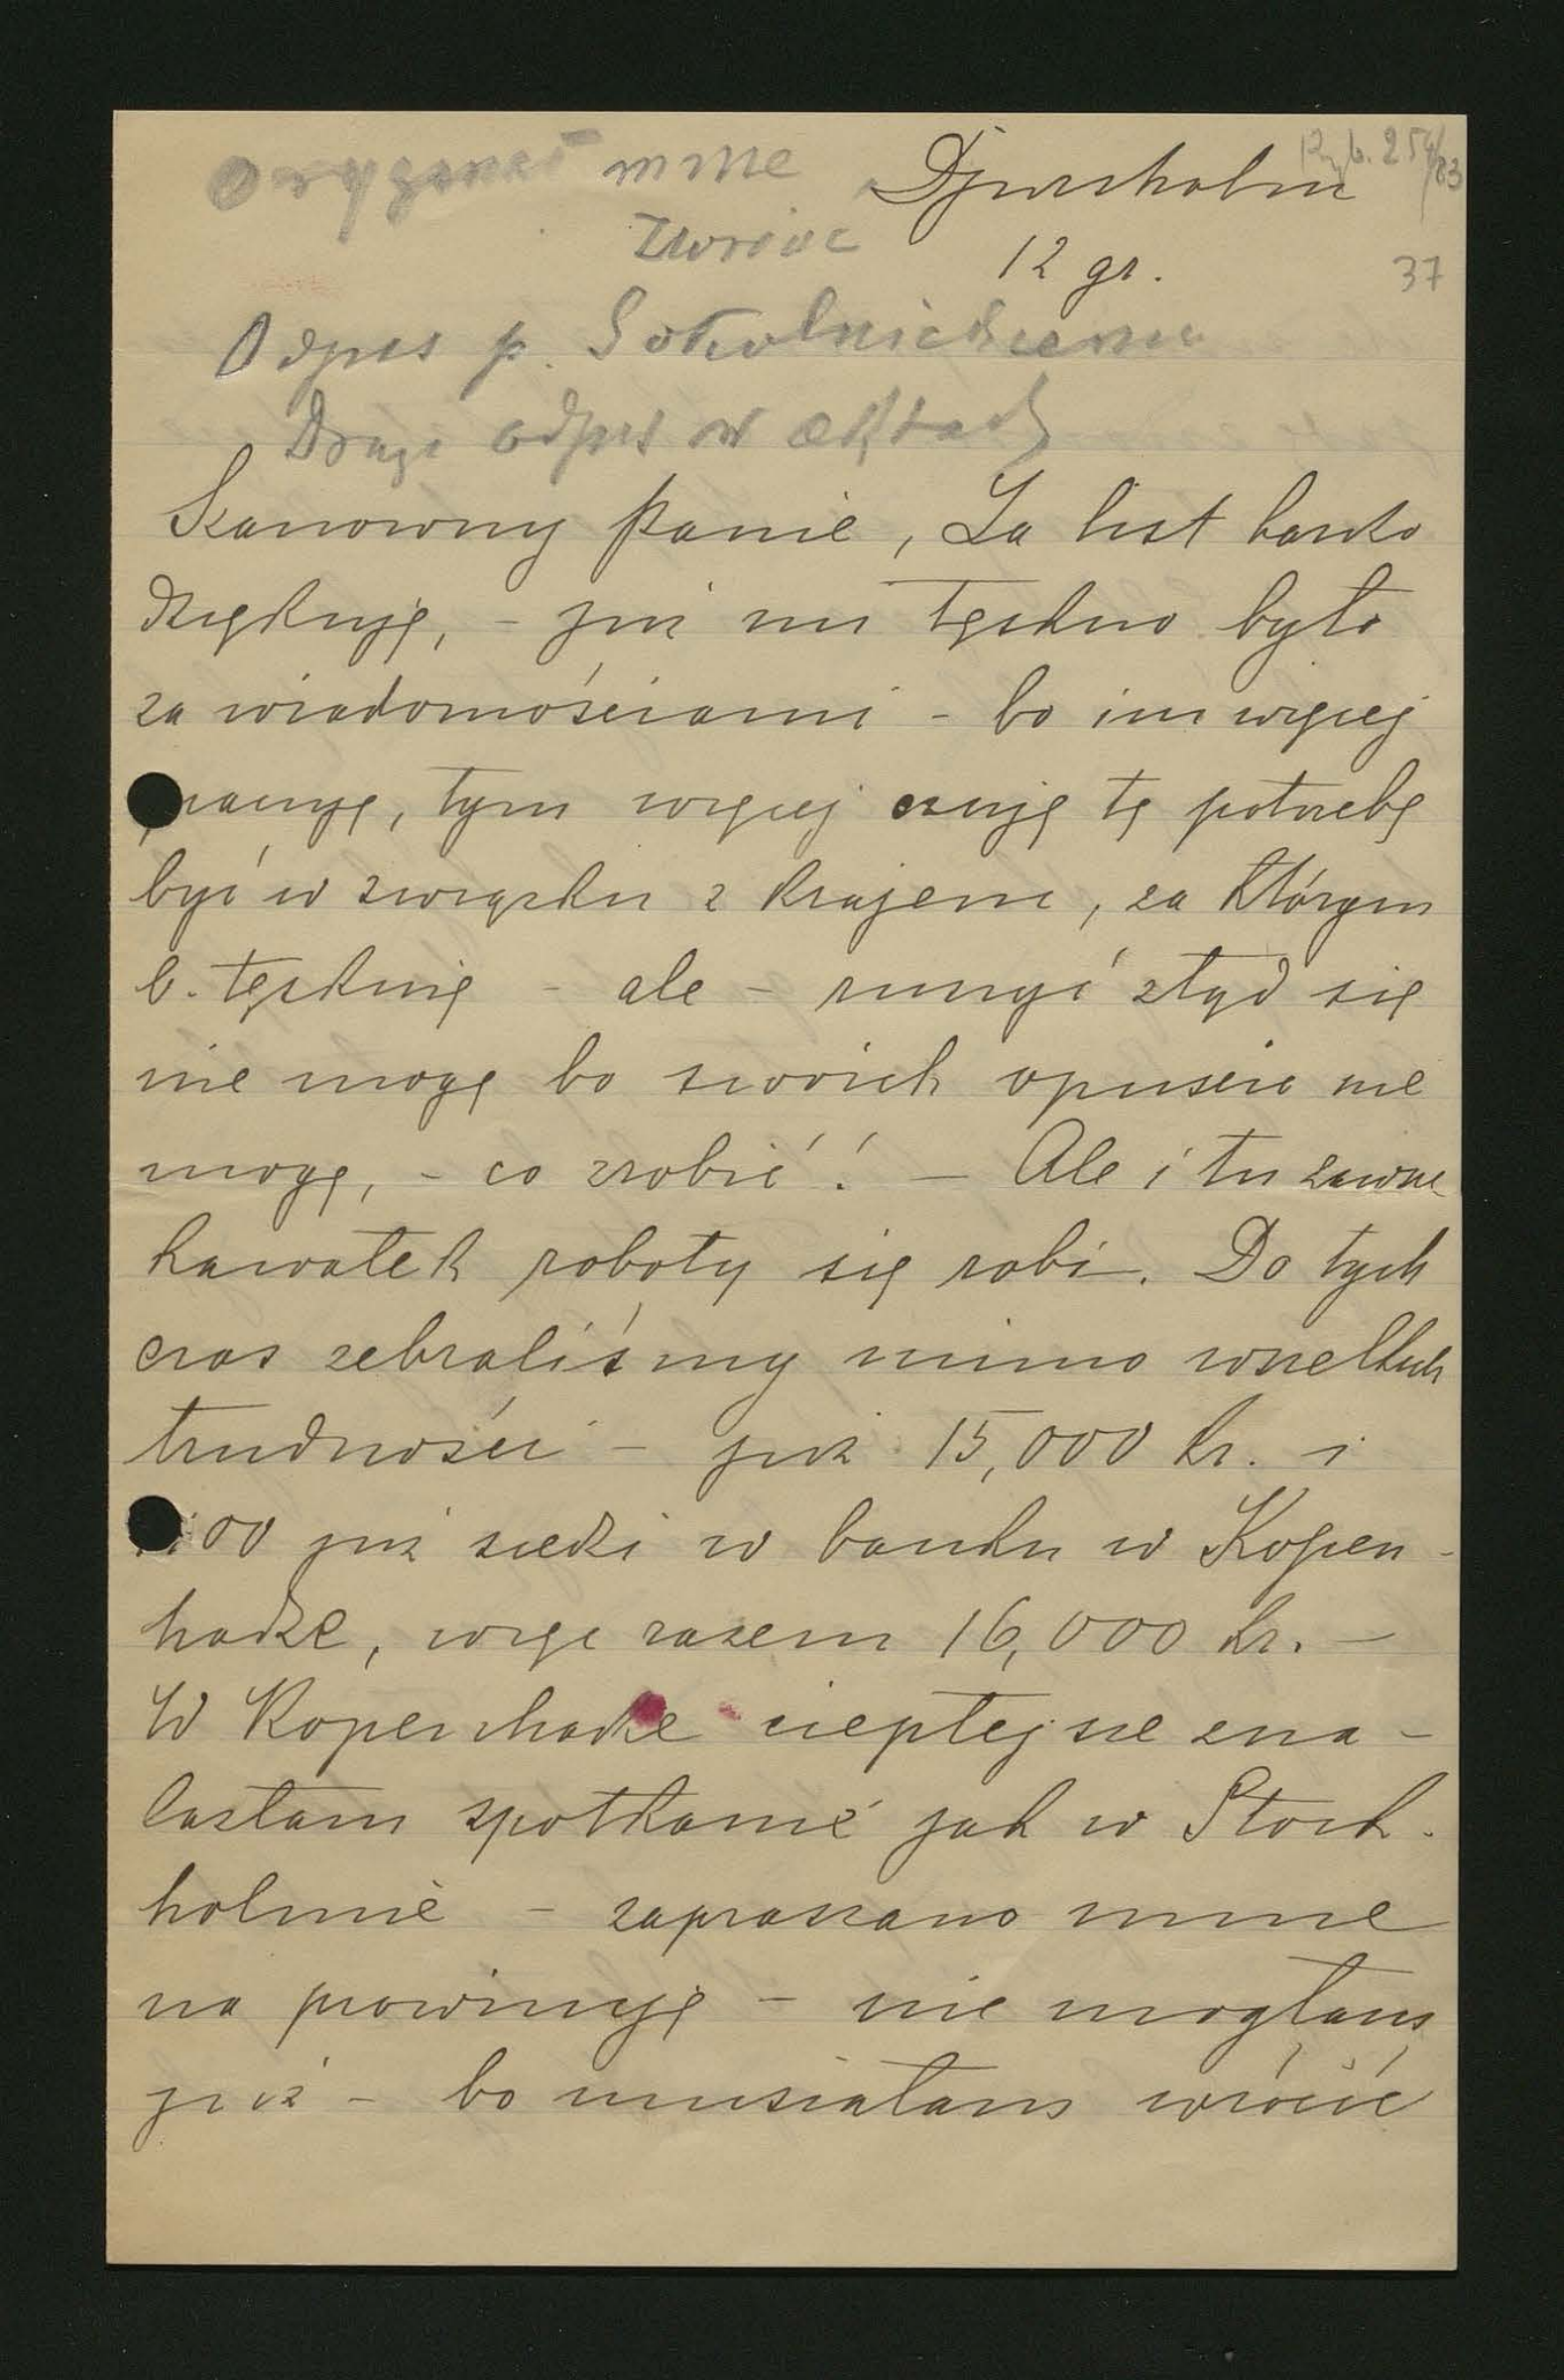 Oryginał mnie Djursholm Rkb. 254/83
zwrócić 12 gr. 37
Odpis p. Sokolnickiemu
Drugi odpis w aktach
Szanowny Panie, Za list bardzo
dziękuję, - już mi tęskno było
za wiadomościami - bo im więcej
pracuję, tym więcej czuję tę potrzebę
być w związku z krajem, za którym
b. tęsknię - ale - ruszyć ztąd się
nie mogę bo swoich opuścić nie
mogę, - co zrobić! - Ale i tu zawsze
kawałek roboty się robi. Do tych
czas zebraliśmy mimo wszelkich
trudności - już 15,000 kr. i
00 już siedzi w banku w Kopen-
hadze, więc razem 16,000 kr. -
W Kopenhadze cieplejsze zna-
lazłam spotkanie jak w Stock-
holmie - zapraszano mnie
na prowincyę - nie mogłam
już - bo musiałam wrócić